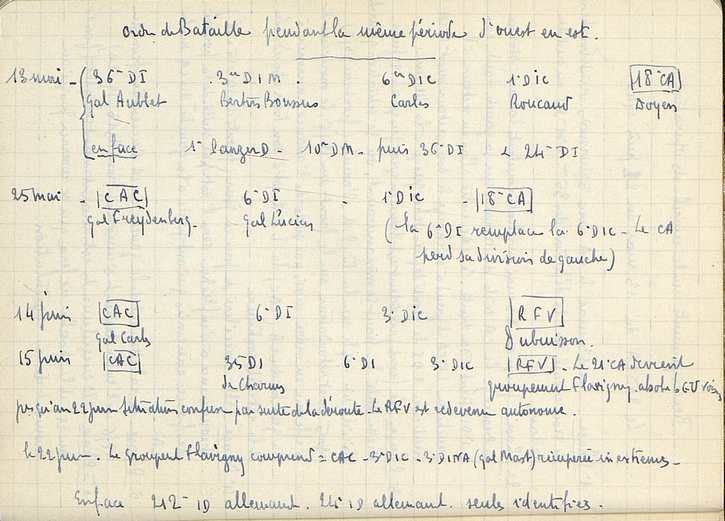 Ordre de Bataille pendant la même période d'ouest en est.
13 mai - 36e DI 3eme DIM. 6eme DIC 1e DIC 18e CA
Gal Aublet Bertin Boussus Carles Roucaud Doyen
en face 1e PanzerD - 10e DM - puis 36e DI & 24e DI
25 mai - CAC 6e DI - 1e DIC - 18e CA
Gal Freydenberg - Gal Lucien (La 6e DI remplace la 6e DIC - Le CA
perd sa division de gauche)
14 juin CAC 6e DI 3e DIC RFV
Gal Carles Dubuisson.
15 juin CAC 35 DI 6e DI 3e DIC RFV. Le 21e CA devient
de Charnes groupement Flavigny. absorbe GU
jusqu'au 22 juin situation confuse par suite de la déroute. Le RFV est redevenu autonome.
le 22 juin. Le groupent Flavigny comprend = CAC - 3e DIC - 3e DINA (gal Mast) récupérée in extremis -
En face 212e ID allemand. 24e ID allemand. seules identifiées.